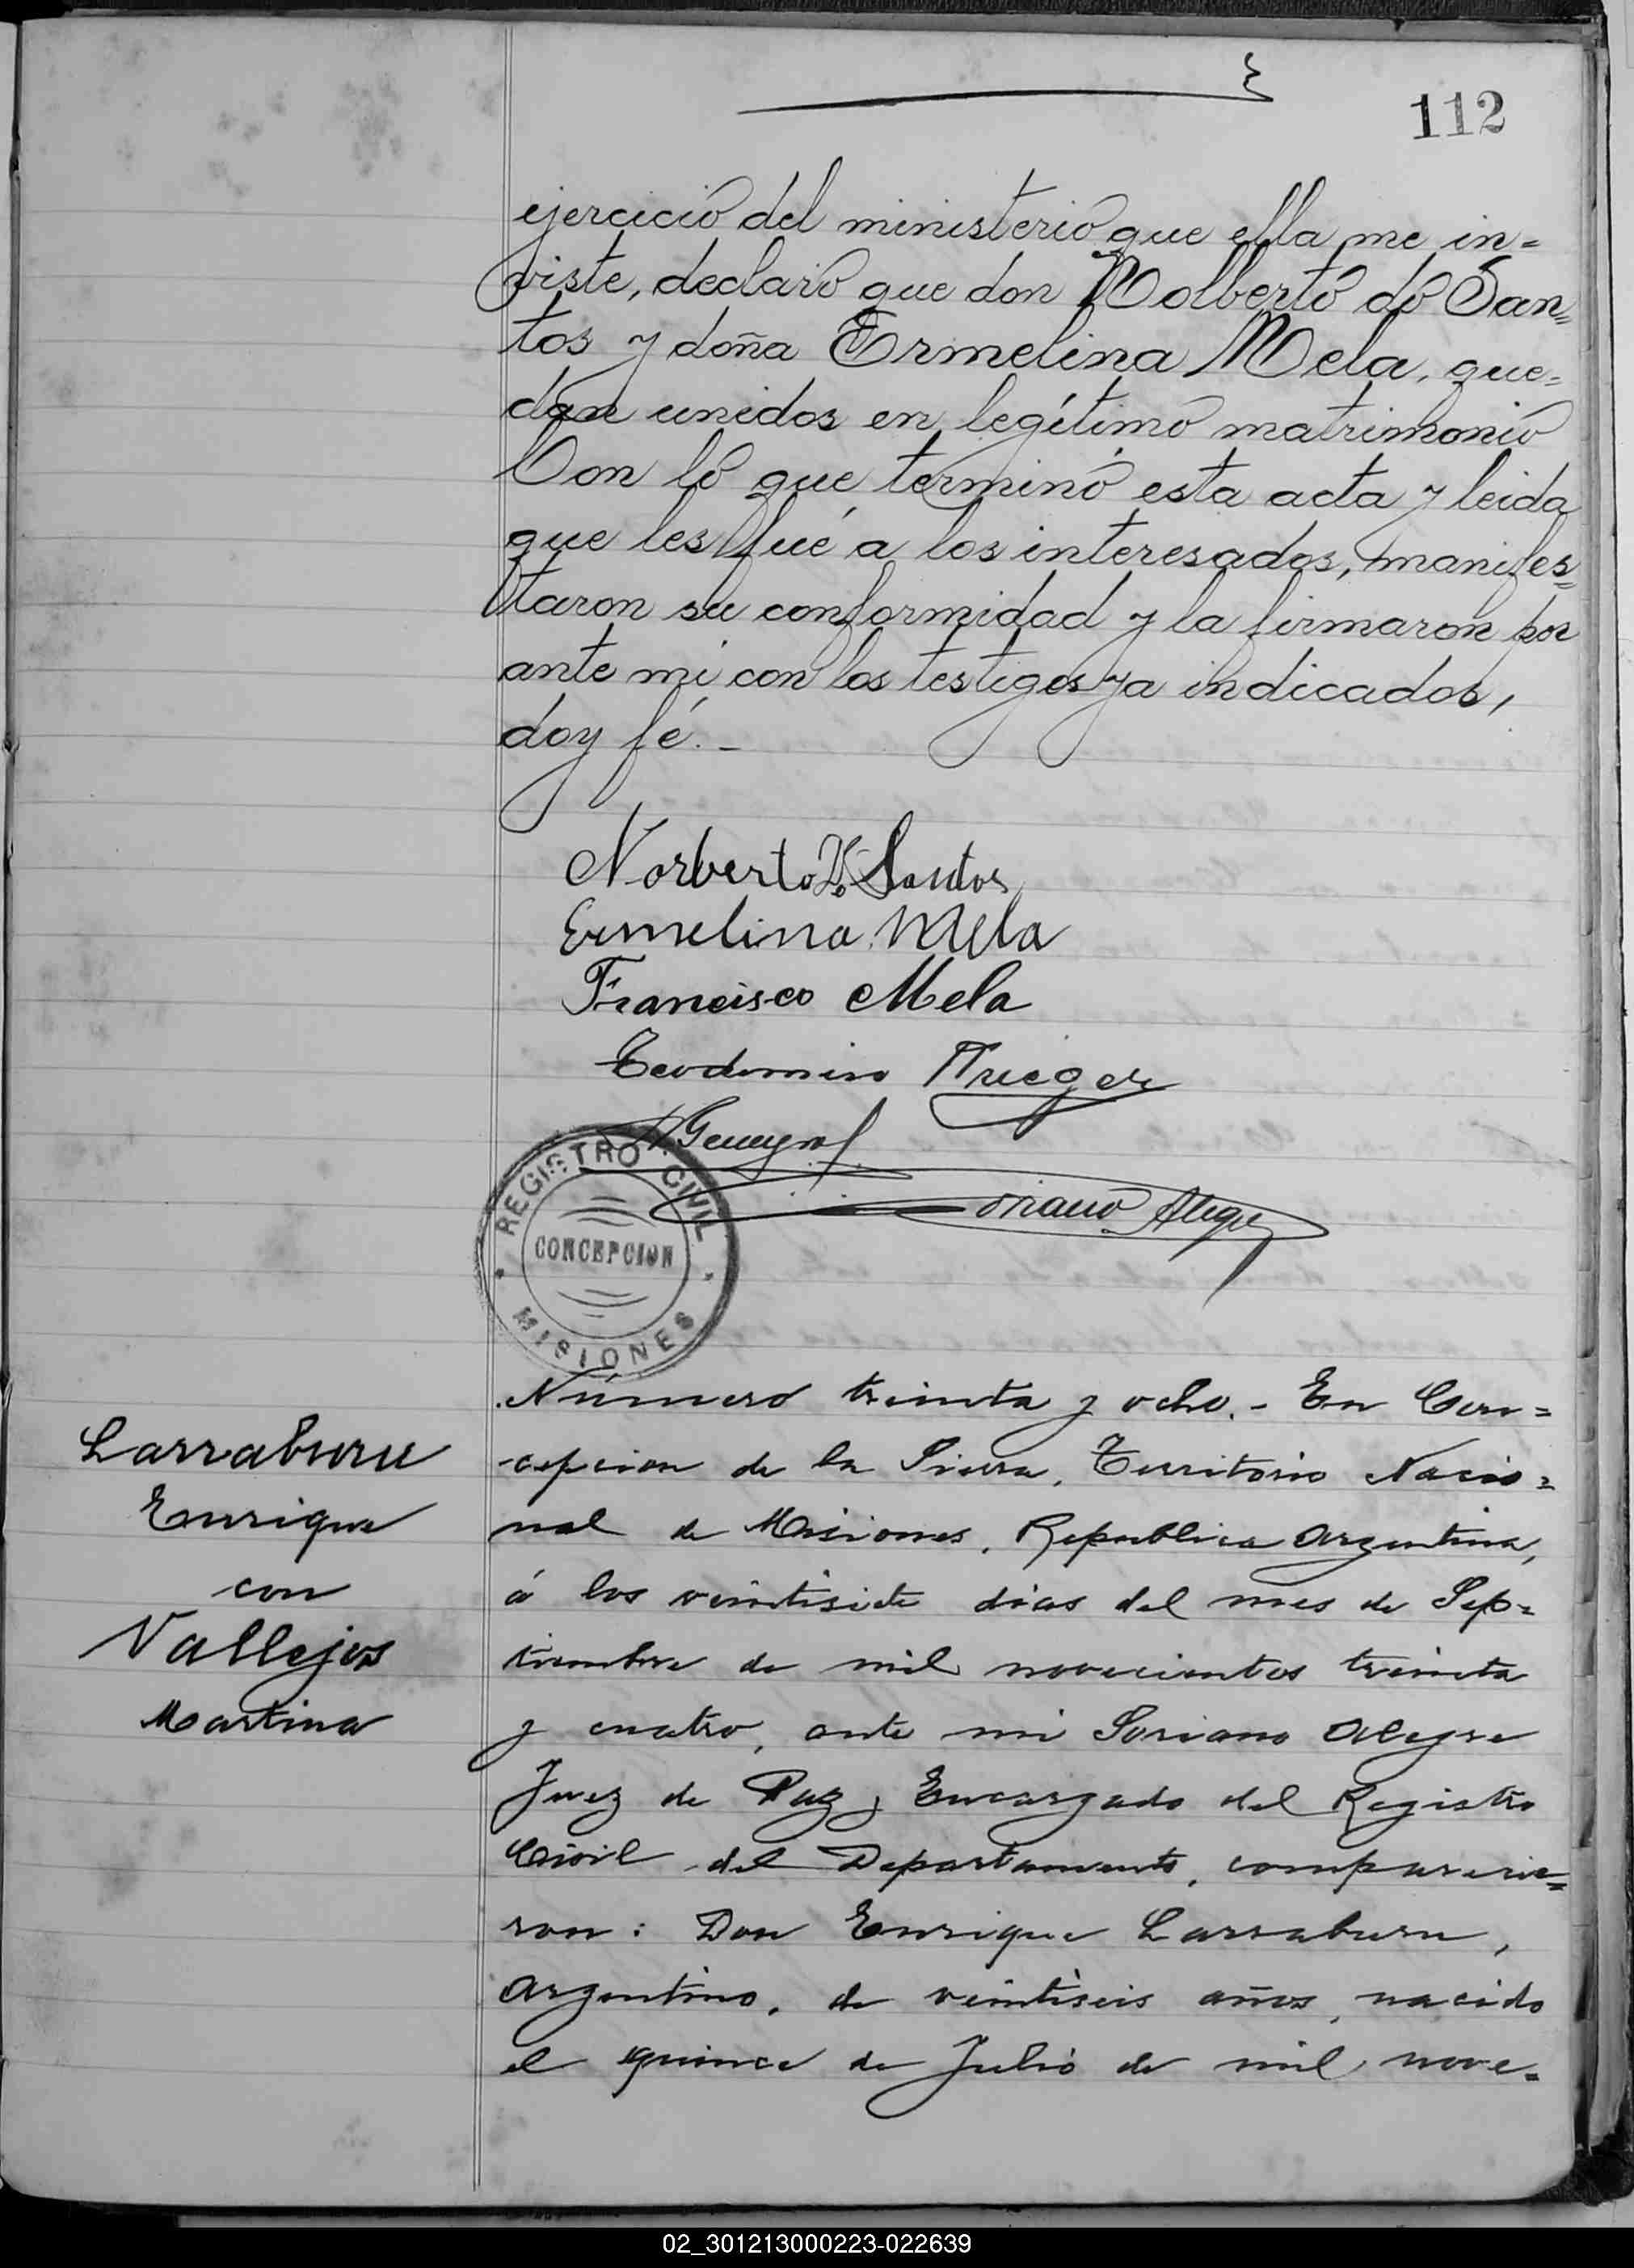 112
ejercicio del ministerio que ella me in=
viste, declaro que don Nolberto do San=
tos y doña Ermelina Mela, que=
dan unidos en legítimo matrimonio
Con lo que terminó esta acta y leida
que les fué a los interesados, manifes=
taron su conformidad y la firmaron por
ante mi con los testigos ya indicados,
doy fé.-
Norberto D. Santos
Ermelina Mela
Francisco Mela
Teodomiro
Soriano Alegre
REGISTRO CIVIL
CONCEPCION
MISIONES
Larraburu
Enrique
con
Vallejos
Martina
Número treinta y ocho.- En Con=
cepcion de la Sierra, Territorio Nacio=
nal de Misiones, Republica Argentina,
á los veintisiete dias del mes de Sep=
tiembre de mil novecientos treinta
y cuatro, ante mi Soriano Alegre
Juez de Paz y Encargado del Registro
Civil del Departamento, comparecie=
ron: Don Enrique Larraburu,
argentino, de veintiseis años, nacido
el quince de Julio de mil nove=
02_301213000223-022639